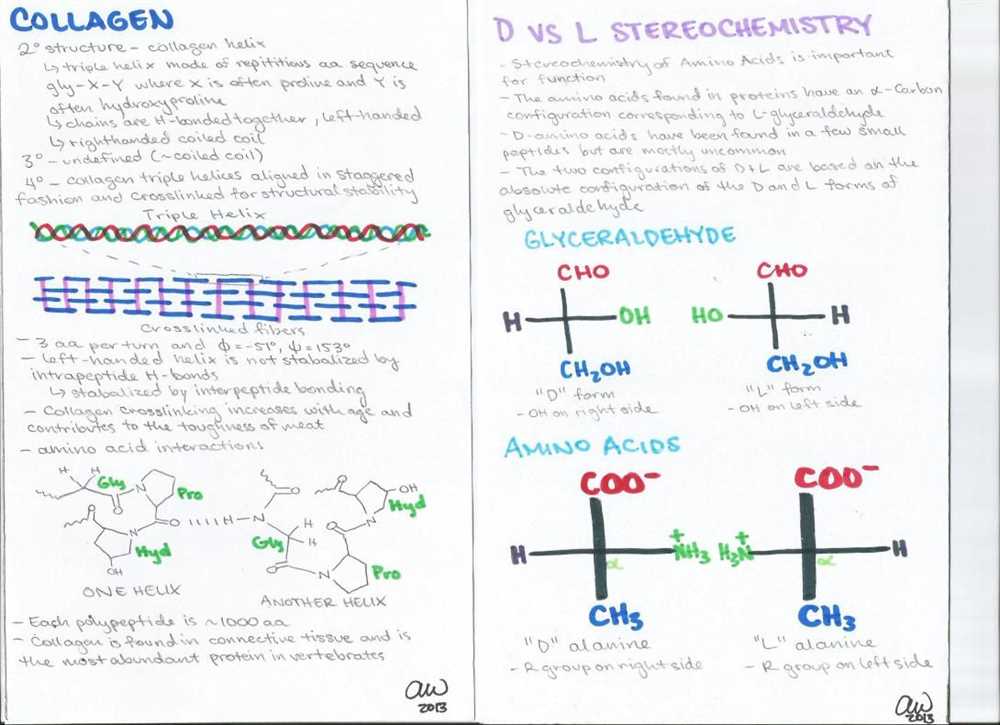 COLLAGEN
2° structure - collagen helix
↳ triple helix made of repititious aa sequence
gly-X-Y where X is often proline and Y is
often hydroxyproline
↳ chains are H-bonded together, left-handed
↳ righthanded coiled coil
3° - undefined (~coiled coil)
4° - collagen triple helices aligned in staggered
fashion and crosslinked for structural stability
Triple Helix
Crosslinked fibers
- 3 aa per turn and ϕ=-51°, ψ=153°
- left-handed helix is not stabalized by
intrapeptide H-bonds
↳ stabalized by interpeptide bonding
- Collagen crosslinking increases with age and
contributes to the toughness of meat
- amino acid interactions
H H
Gly
O
N
Pro
O
N
O
Hyd
OH
ONE HELIX
H
O
N
H
H
Gly
O
N
Pro
O
N
O
OH
Hyd
ANOTHER HELIX
- Each polypeptide is ~1000 aa
- Collagen is found in connective tissue and is
the most abundant protein in vertebrates
aw
2013
D VS L STEREOCHEMISTRY
- Stereochemistry of Amino Acids is important
for function
- The amino acids found in proteins have an α-Carbon
configuration corresponding to L-glyceraldehyde
- D-amino acids have been found in a few small
peptides but are mostly uncommon
- The two configurations of D+L are based on the
absolute configuration of the D and L forms of
glyceraldehyde
GLYCERALDEHYDE
CHO
H OH
CH₂OH
"D" form
- OH on right side
CHO
HO H
CH₂OH
"L" form
- OH on left side
AMINO ACIDS
COO⁻
H N⁺H₃
α
CH₃
"D" alanine
- R group on right side
COO⁻
H₃N⁺ H
α
CH₃
"L" alanine
- R group on left side
aw
2013